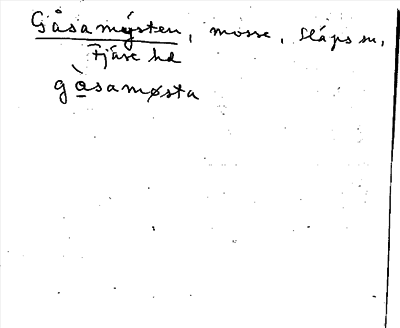 Gåsamýsten, mosse, Släps sn,
Fjäre hd
gåsamøsta